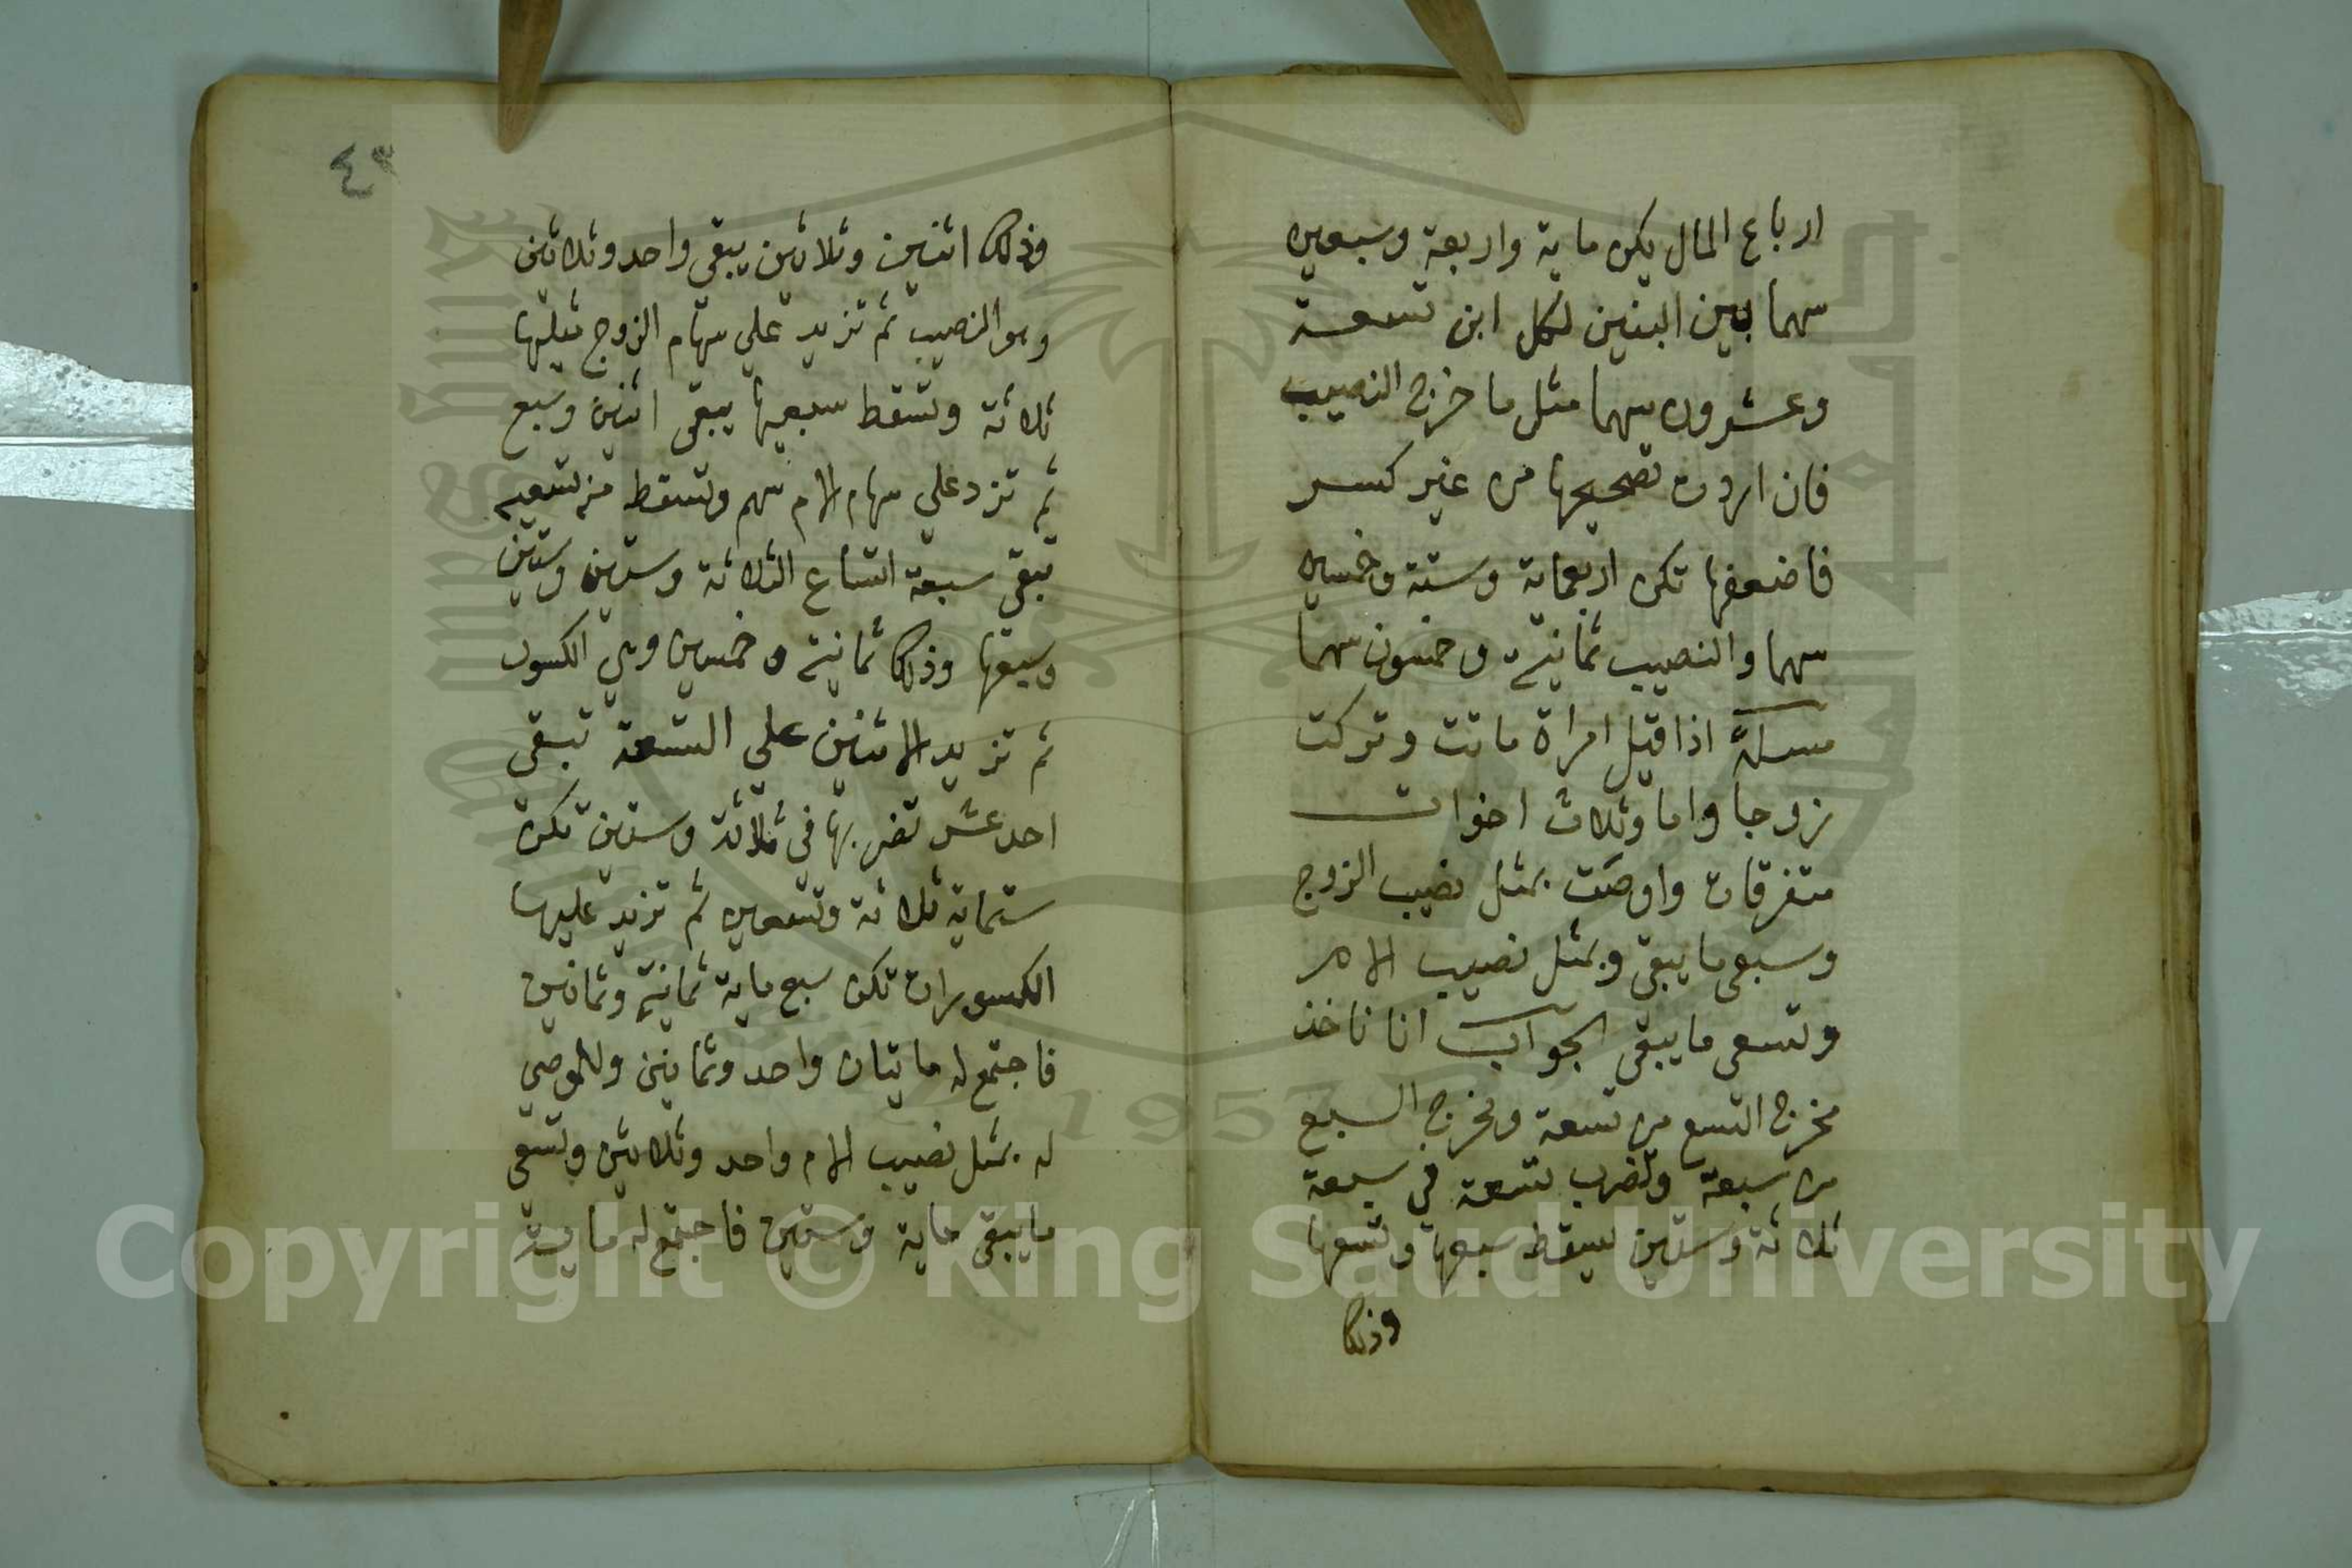 ارباع المال يكن ماية واربعة وسبعين
سهما بين البنين لكل ابن تسعة
وعشرون سهما مثل ما خرج النصيب
فان اردت تصحيحها من غير كسر
فاضعفها تكن اربعماية وستة وخمسين
سهما والنصيب ثمانية وخمسون سهما
مسلة اذا قيل امراة ماتت وتركت
زوجا واما وثلاث اخوات
متفرقات واوصت بمثل نصيب الزوج
وسبعي ما يبقي وبمثل نصيب الام
وتسعي ما يبقي الجواب انا ناخذ
مخرج التسع من تسعة ومخرج السبع
من سبعة وتضرب تسعة في سبعة
ثلاثة وستين يسقط سبعها وتسعها
وذلك
٤٣
وذلك اثنين وثلاثين يبقي واحد وثلاثين
وهو النصيب ثم تزيد علي سهام الزوج مثليها
ثلاثة وتسقط سبعيها يبقي اثنين وسبع
ثم تزد علي سهام الام سهم وتسقط منه تسعيه
تبقي سبعة اتساع الثلاثة وستين وستين
وسبعها وذلك ثمانية وخمسين وهي الكسور
ثم تزيد الاثنين علي التسعة تبقي
احد عشر تضربها في ثلاثة وستين تكن
ستماية ثلاثة وتسعين ثم تزيد عليها
الكسورات تكن سبع ماية ثمانية وثمانين
فاجتمع له مايتان واحد وثمانين وللموصي
له بمثل نصيب الام واحد وثلاثين وتسعي
ما يبقي ماية وستين فاجتمع له ماية
Copyright © King Saud University
1957